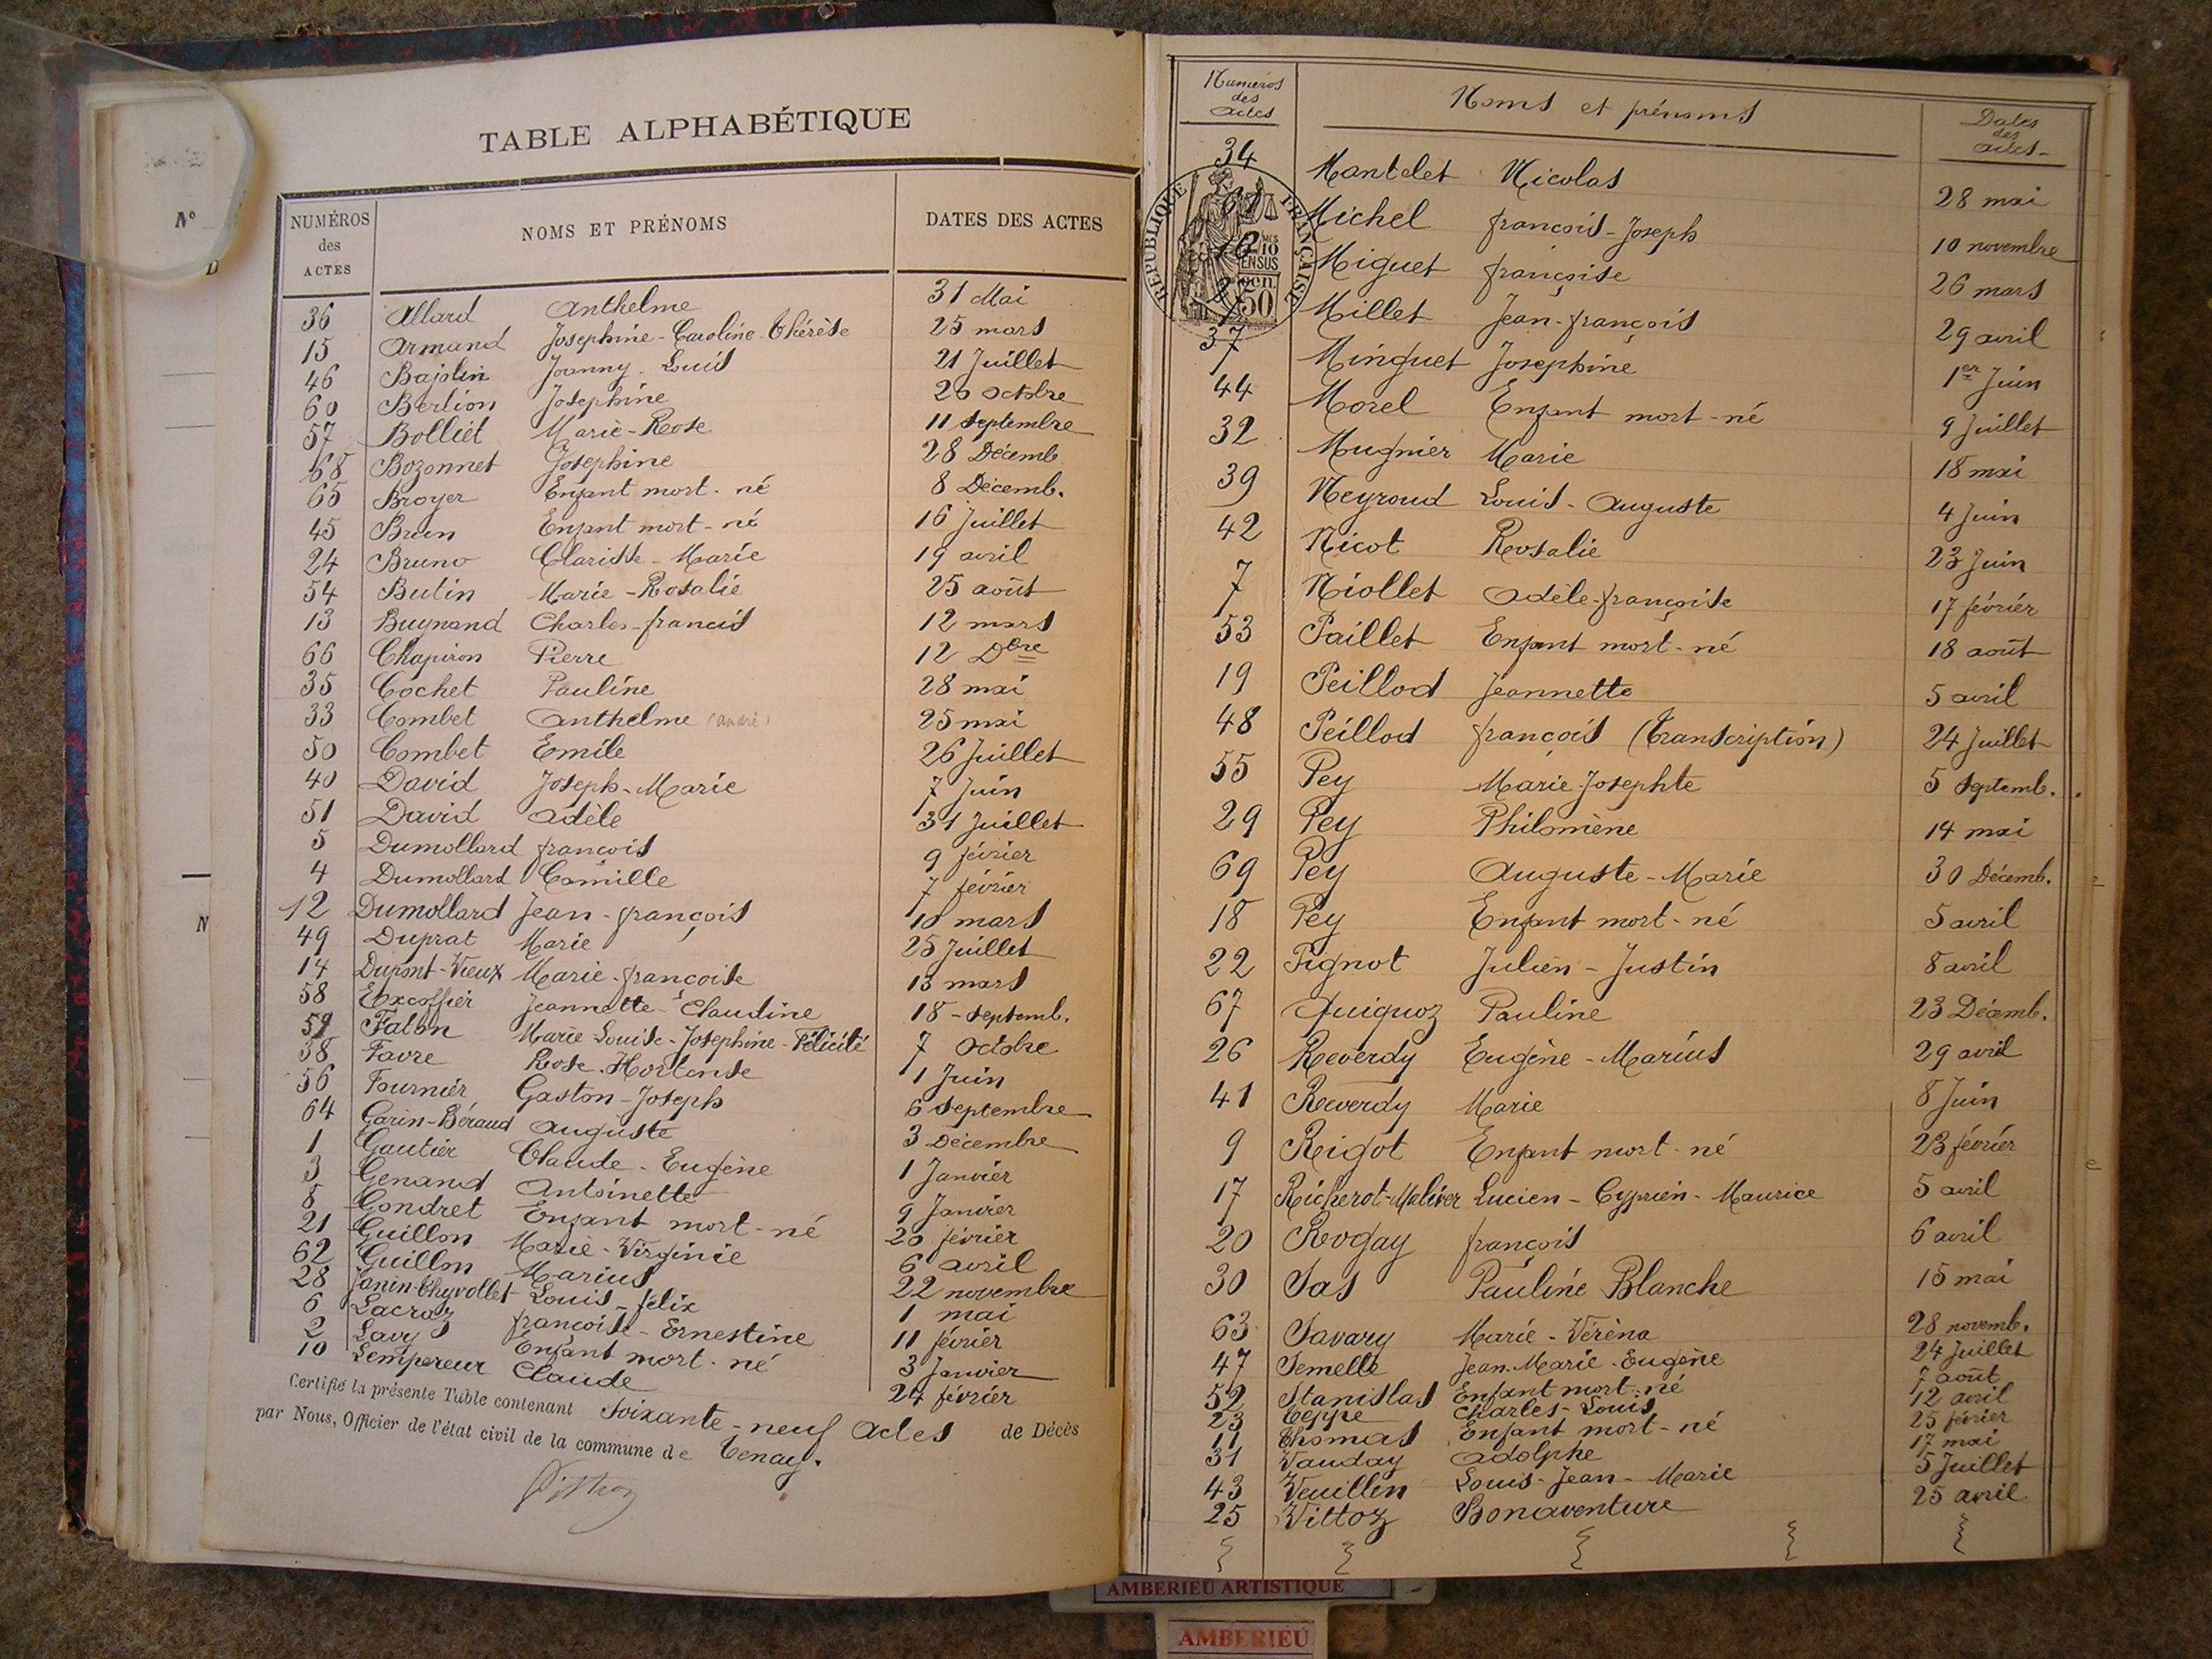 TABLE ALPHABÉTIQUE
NUMÉROS des ACTES NOMS ET PRÉNOMS DATES DES ACTES
36 Allard Anthelme 31 Mai
15 Armand Joséphine-Caroline-Thérèse 25 mars
46 Bajolin Joanny-Louis 21 Juillet
60 Berlion Joséphine 26 octobre
57 Bolliet Marie-Rose 11 Septembre
68 Bozonnet Joséphine 28 Décemb.
65 Broyer Enfant mort-né 8 Décemb.
45 Brun Enfant mort-né 16 Juillet
24 Bruno Clarisse-Marie 19 avril
54 Butin Marie-Rosalie 25 août
13 Buynand Charles-francis 12 mars
66 Chapiron Pierre 12 Dbre
35 Cochet Pauline 28 mai
33 Combet Anthelme (André) 25 mai
50 Combet Emile 26 Juillet
40 David Joseph-Marie 7 Juin
51 David Adèle 31 Juillet
5 Dumollard françois 9 février
4 Dumollard Camille 7 février
12 Dumollard Jean-françois 10 mars
49 Duprat Marie 25 Juillet
14 Dupont-Vieux Marie-françoise 13 mars
58 Excoffier Jeannette-Claudine 18-septemb.
59 Falbn Marie-Louise-Joséphine-Félicité 7 Octobre
38 Favre Rose-Hortense 1 Juin
56 Fournier Gaston-Joseph 6 Septembre
64 Garin-Béraud Auguste 3 Décembre
1 Gautier Claude-Eugène 1 Janvier
3 Genand Antoinette 9 Janvier
8 Gondret Enfant mort-né 20 février
21 Guillon Marie-Virginie 6 avril
62 Guillon Marius 22 novembre
28 Janin-Thyvollet Louis-félix 1 mai
6 Lacroz françoise-Ernestine 11 février
2 Lavy Enfant mort-né 3 Janvier
10 Lempereur Claude 24 février
Certifié la présente Table contenant Soixante-neuf actes de Décès
par Nous, Officier de l'état civil de la commune de Tenay.
Numéros des actes Noms et prénoms Dates des actes
34 Mantelet Nicolas 28 mai
61 Michel françois-Joseph 10 novembre
16 Miguet françoise 26 mars
27 Millet Jean-françois 29 avril
37 Minguet Joséphine 1er Juin
44 Morel Enfant mort-né 9 Juillet
32 Mugnier Marie 18 mai
39 Neyroud Louis-Auguste 4 Juin
42 Nicot Rosalie 23 Juin
7 Niollet Adèle-françoise 17 février
53 Paillet Enfant mort-né 18 août
19 Peillod Jeannette 5 avril
48 Peillod françois (Transcription) 24 Juillet
55 Pey Marie-Josephte 5 Septemb.
29 Pey Philomène 14 mai
69 Pey Auguste-Marie 30 Décemb.
18 Pey Enfant mort-né 5 avril
22 Pignot Julien-Justin 8 avril
67 Quiquoz Pauline 23 Décemb.
26 Reverdy Eugène-Marius 29 avril
41 Reverdy Marie 8 Juin
9 Rigot Enfant mort-né 23 février
17 Richerot-Maliver Lucien-Cyprien-Maurice 5 avril
20 Rogay françois 6 avril
30 Sas Pauline Blanche 15 mai
63 Savary Marie-Véréna 28 novemb.
47 Semelle Jean-Marie-Eugène 24 Juillet
52 Stanislas Enfant mort-né 7 août
23 Teppe Charles-Louis 12 avril
11 Thomas Enfant mort-né 25 février
31 Vauday Adolphe 17 mai
43 Veuillin Louis-Jean-Marie 5 Juillet
25 Vittoz Bonaventure 25 avril
RÉPUBLIQUE FRANÇAISE
AMBERIEU ARTISTIQUE
AMBERIEU